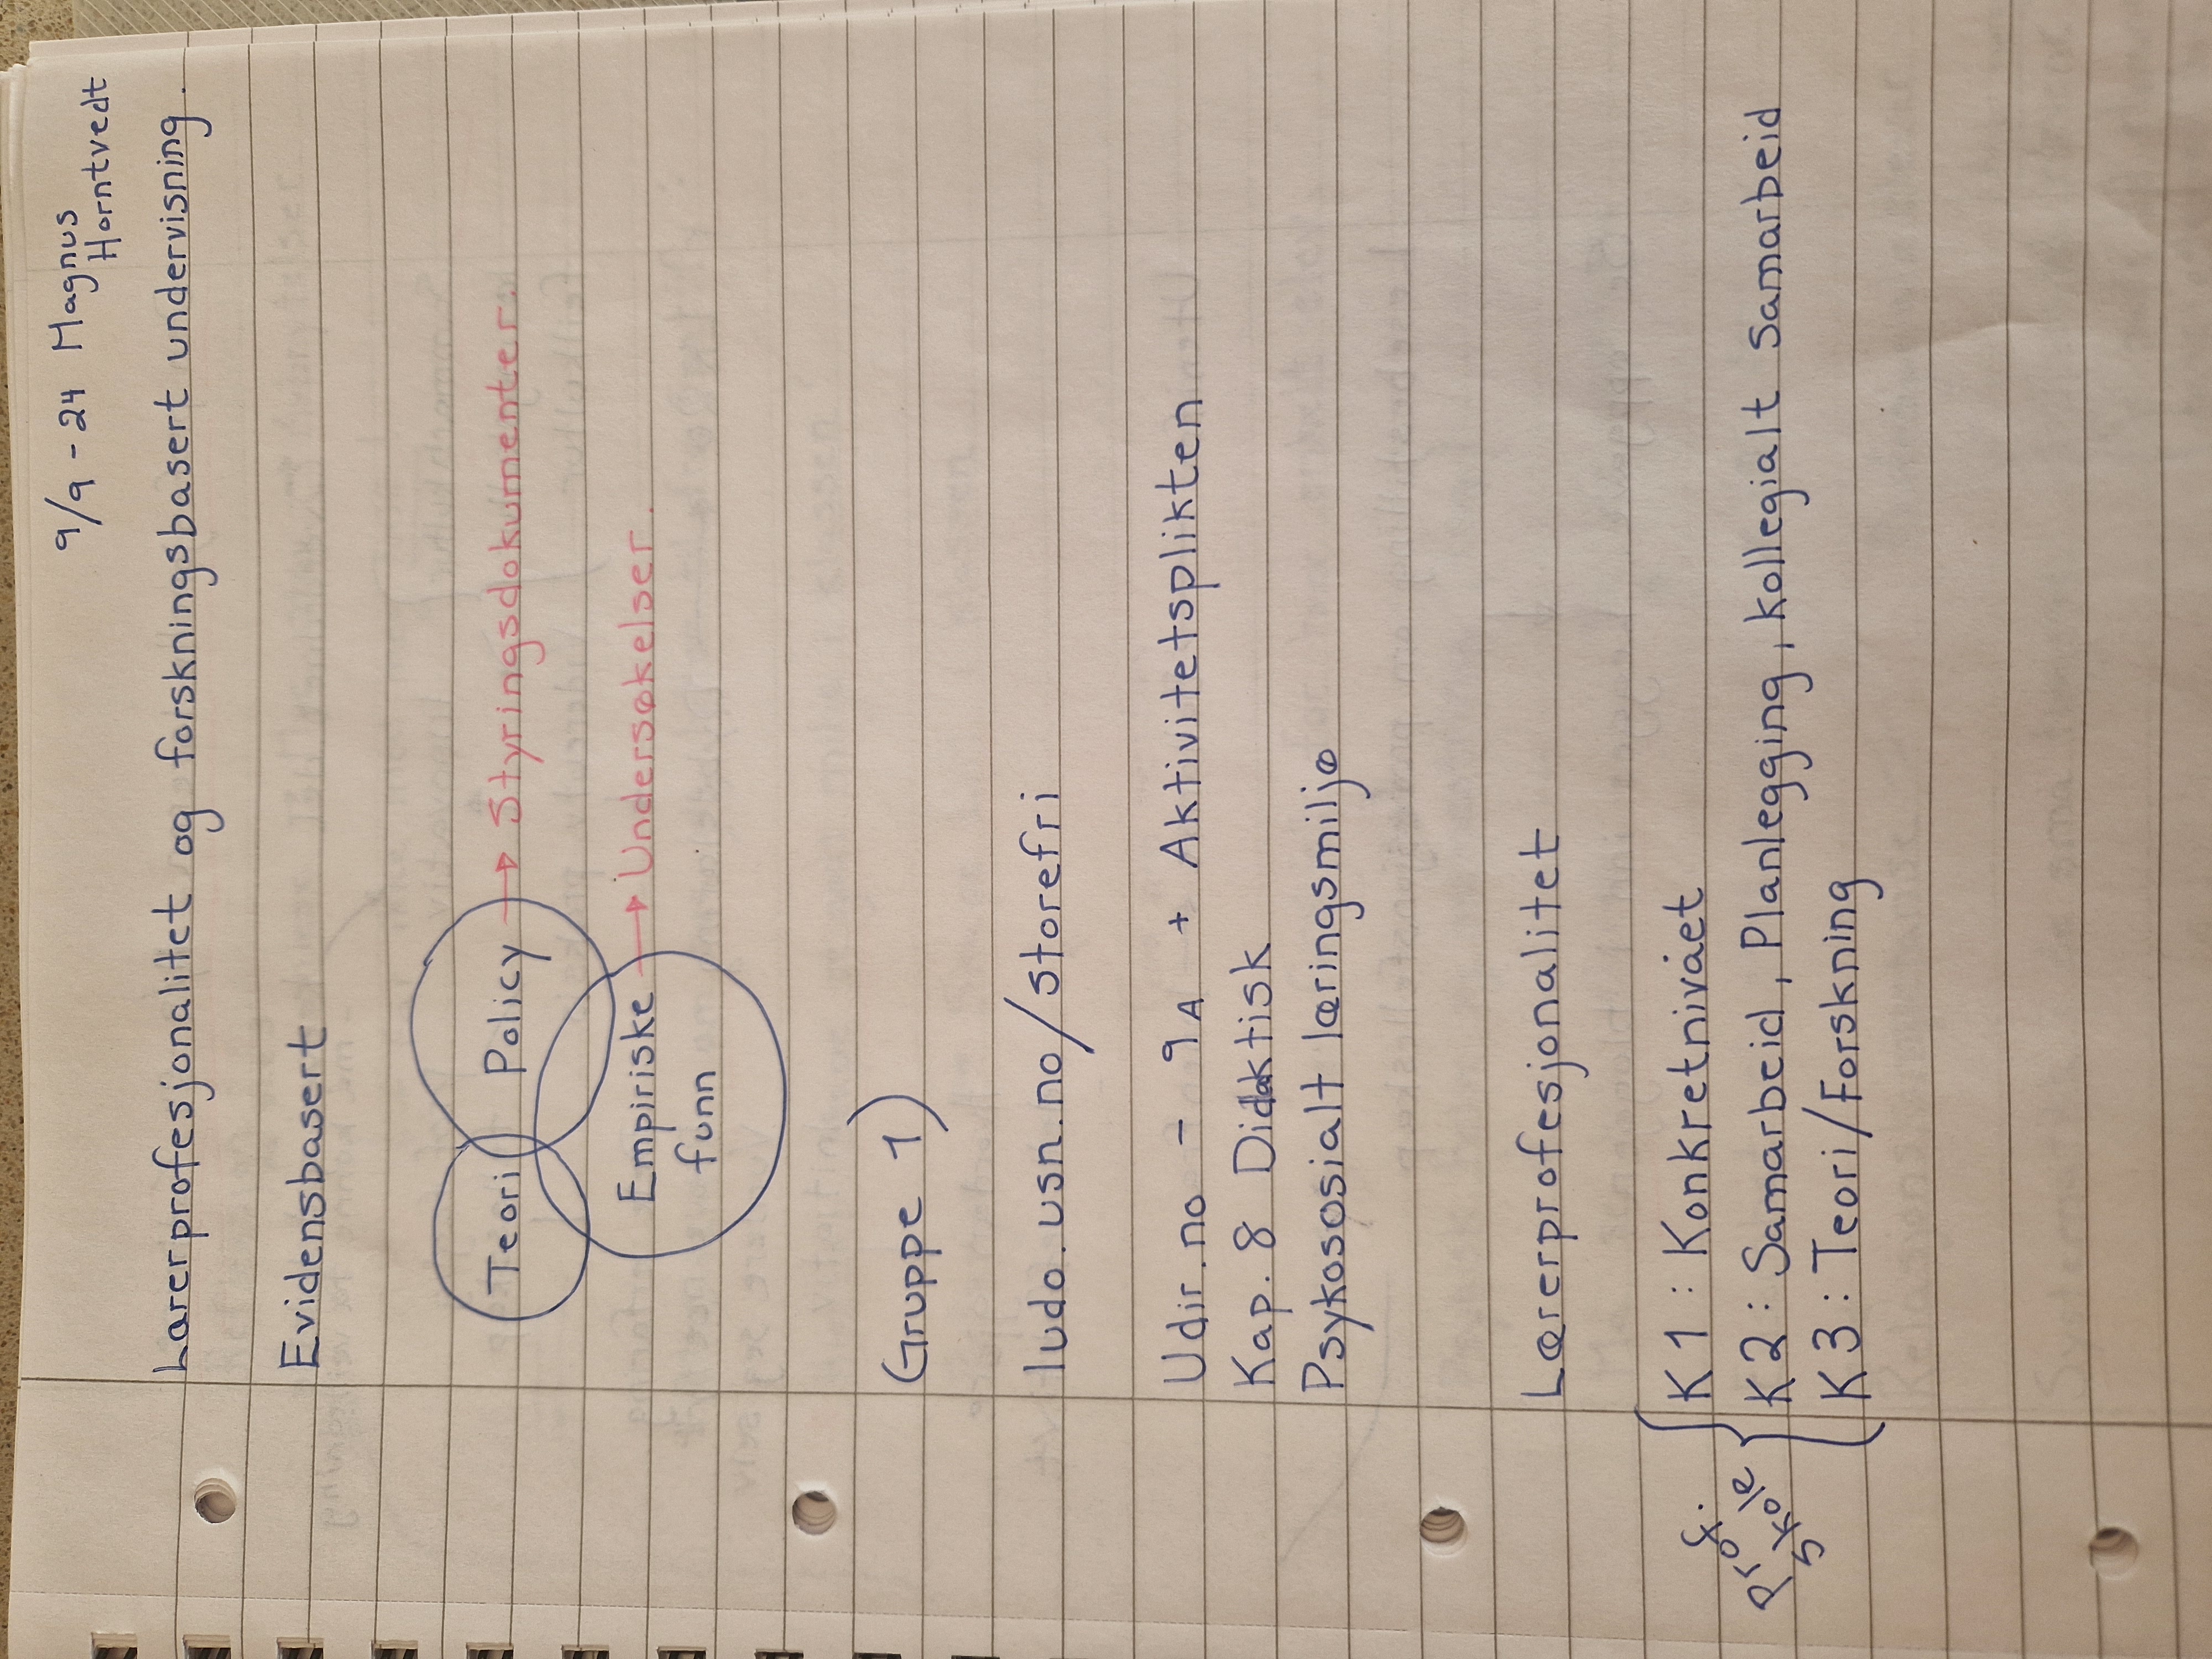 9/9-24 Magnus
Horntvedt
Lærerprofesjonalitet og forskningsbasert undervisning.
Evidensbasert
Teori Policy → Styringsdokumenter.
Empiriske → Undersøkelser.
funn
Gruppe 1)
ludo.usn.no/storefri
Udir.no - 9A + Aktivitetsplikten
Kap. 8 Didaktisk
Psykososialt læringsmiljø
Lærerprofesjonalitet
K1: Konkretnivået
Prof. skole K2: Samarbeid, Planlegging, kollegialt samarbeid
K3: Teori/Forskning